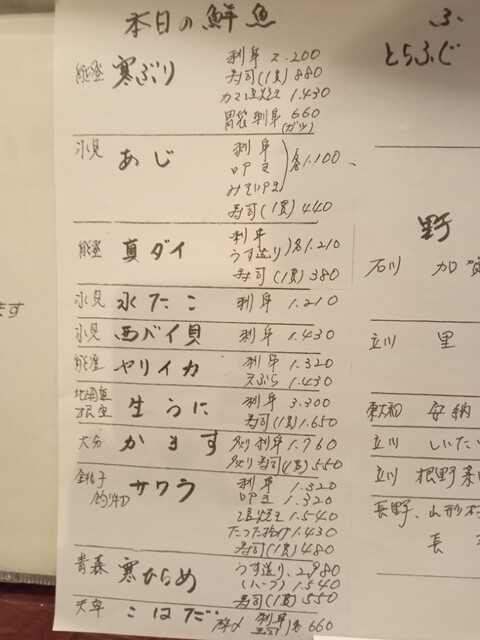 本日の鮮魚
能登 寒ぶり 刺身 2.200
寿司(1貫) 880
カマ塩焼き 1.430
胃袋刺身 660
(ガツ)
氷見 あじ 刺身
叩き 各1.100
みそ叩き
寿司(1貫) 440
能登 真ダイ 刺身
うす造り 各1.210
寿司(1貫) 380
氷見 水たこ 刺身 1.210
氷見 西バイ貝 刺身 1.430
能登 ヤリイカ 刺身 1.320
天ぷら 1.430
北海道 根室 生うに 刺身 3.300
寿司(1貫) 1.650
大分 かます 炙り刺身 1.760
炙り寿司(1貫) 550
銚子 釣〆 サワラ 刺身 1.320
叩き 1.320
塩焼き 1.540
たつた揚げ 1.430
寿司(1貫) 480
青森 寒ひらめ うす造り 2,980
(ハーフ) 1.540
寿司(1貫) 550
天草 こはだ 酢〆 刺身
寿司 各660
ます
ふ
とらふぐ
野
石川 加賀
立川 里
東京都 安納
立川 しいたけ
立川 根野菜
長野、山形村
長